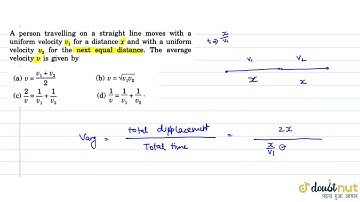 A person travelling on a straight line moves with a
uniform velocity v₁ for a distance x and with a uniform
velocity v₂ for the next equal distance. The average
velocity v is given by
(a) v = (v₁ + v₂)/2 (b) v = √v₁v₂
(c) 2/v = 1/v₁ + 1/v₂ (d) 1/v = 1/v₁ + 1/v₂
t ⇒ x/v₁
v₁ v₂
x x
Vavg = total displacement / Total time = 2x / x/v₁ ⊕
doubtnut
पढ़ना हुआ आसान